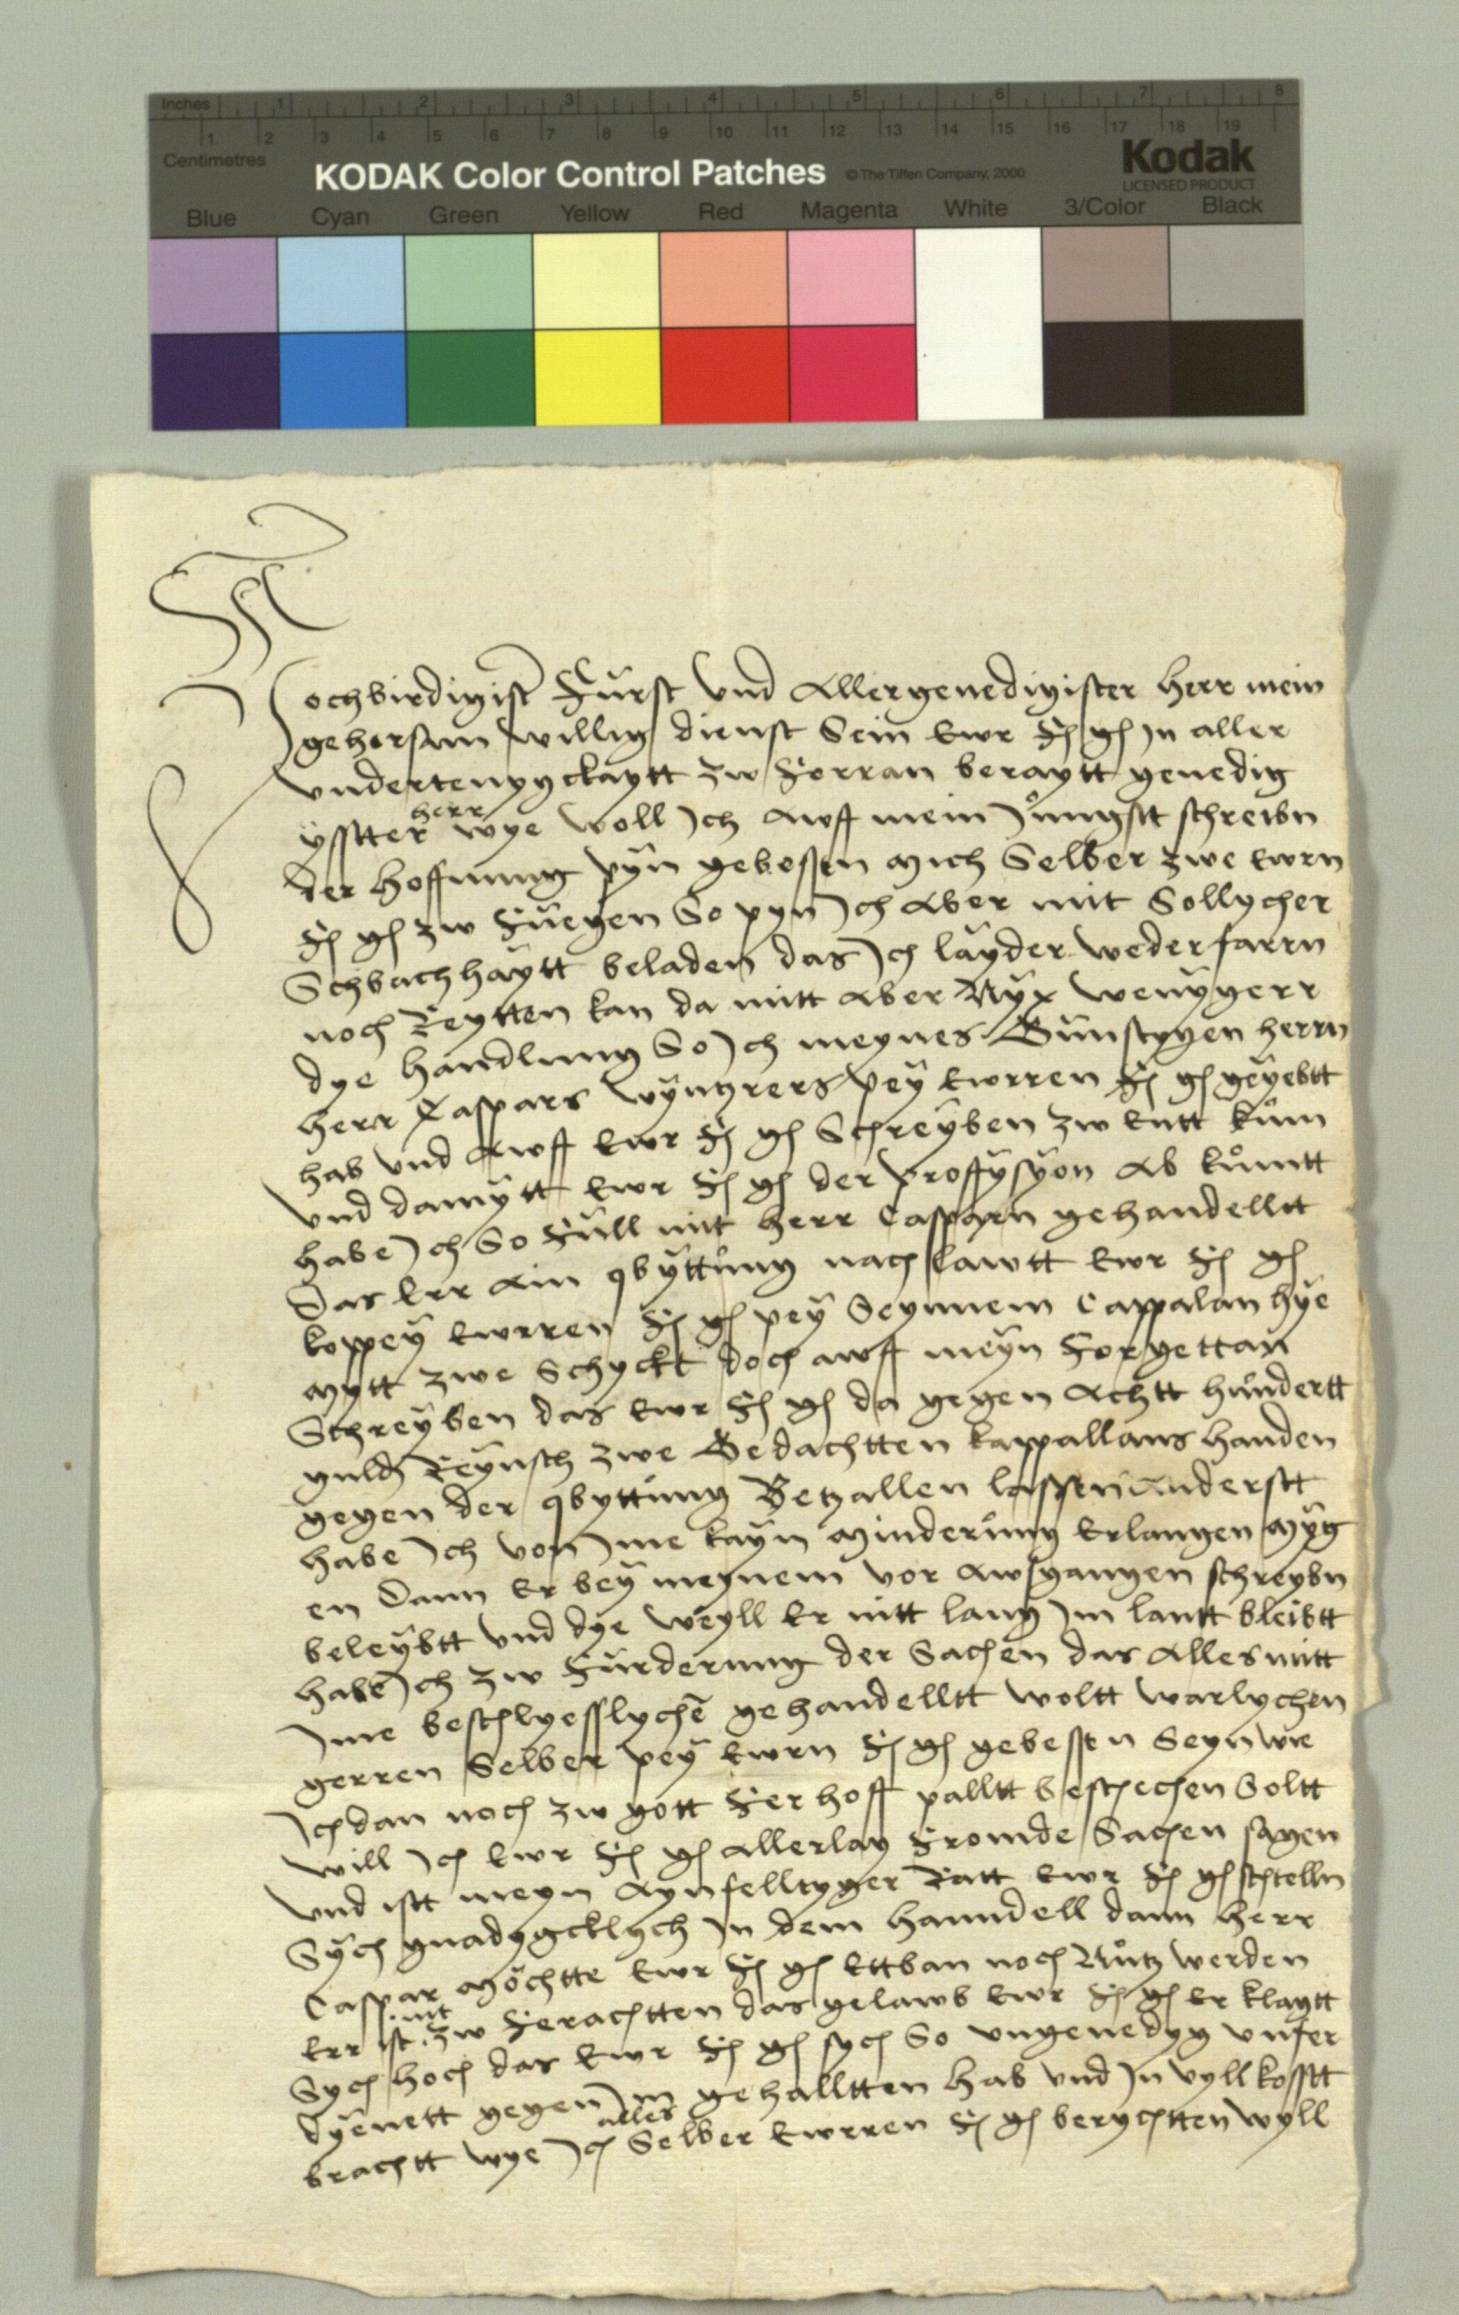 Inches 1 2 3 4 5 6 7 8
1 2 3 4 5 6 7 8 9 10 11 12 13 14 15 16 17 18 19
Centimetres
KODAK Color Control Patches © The Tiffen Company, 2000
Kodak
LICENSED PRODUCT
Blue Cyan Green Yellow Red Magenta White 3/Color Black
Hochbirdigist Fürst vnd Allergenedigister herr mein
gehorsam willig dienst Sein ewr F g in aller
vndertenygckaytt zw Forran beraytt genedig
ysstter herr wye woll Ich Awff mein Jungstt schreibn
der hoffnung pyn gebessen Mich Selber zwe ewrn
F g zw Fuegen So pyn Ich Aber mit Sollycher
Schbachhaytt beladen das Ich layder weder farrn
noch Reytten kan da mitt Aber Nyx wenygerr
dye handlung So Ich meynes Gunstygen herrn
herr Caspars wyntzrers pey ewrren F g geyebtt
hab vnd Awff ewr F g Schreyben zw entt kum
vnd damytt ewr F g der proffysyon Ab kumtt
habe Ich So Füll mit herr Casparn gehandelltt
Das Err Ain qbyttung nach lawtt ewr F g
koppey ewrren F g pey Seynnem Cappalan hye
Mytt zwe Schyckt doch awff meyn Forgettan
Schreyben das ewr F g da gegen Achtt hundertt
guld Reynsch zwe Gedachtten kappallans handen
gegen der qbyttung Betzallen lassen Anderstt
habe Ich von Ime kayn Minderung Erlangen Myg
en Dann Er bey meynem vor Awsgangen schreybn
beleybtt vnd dye weyll Er nitt lang Im lantt bleibtt
habe Ich zw Fürderung der Sachen das Alles mitt
Ime beschlyesslychen gehandelltt woltt warlychen
gerren Selber pey ewrn F g gebessen Seyn wie
Ich dan noch zw gott Ferhoff palltt beschechen Soltt
will Ich ewr F g Allerlay Fromde Sachen sagen
vnd istt meyn Aynfelltyger Ratt ewr F g schtelln
Sych gnadygcklych In dem hanndell dann herr
Caspar Möchtte ewr F g Ettban noch Nutz werden
Err ist nit zw Ferachtten das gelawb ewr F g Er klagtt
Sych hoch das ewr F g sych So vngenedyg vnfer
dyenett gegen Im gehalltten hab vnd In vyll kosstt
brachtt wye Ich alles Selber ewrren F g berychtten wyll